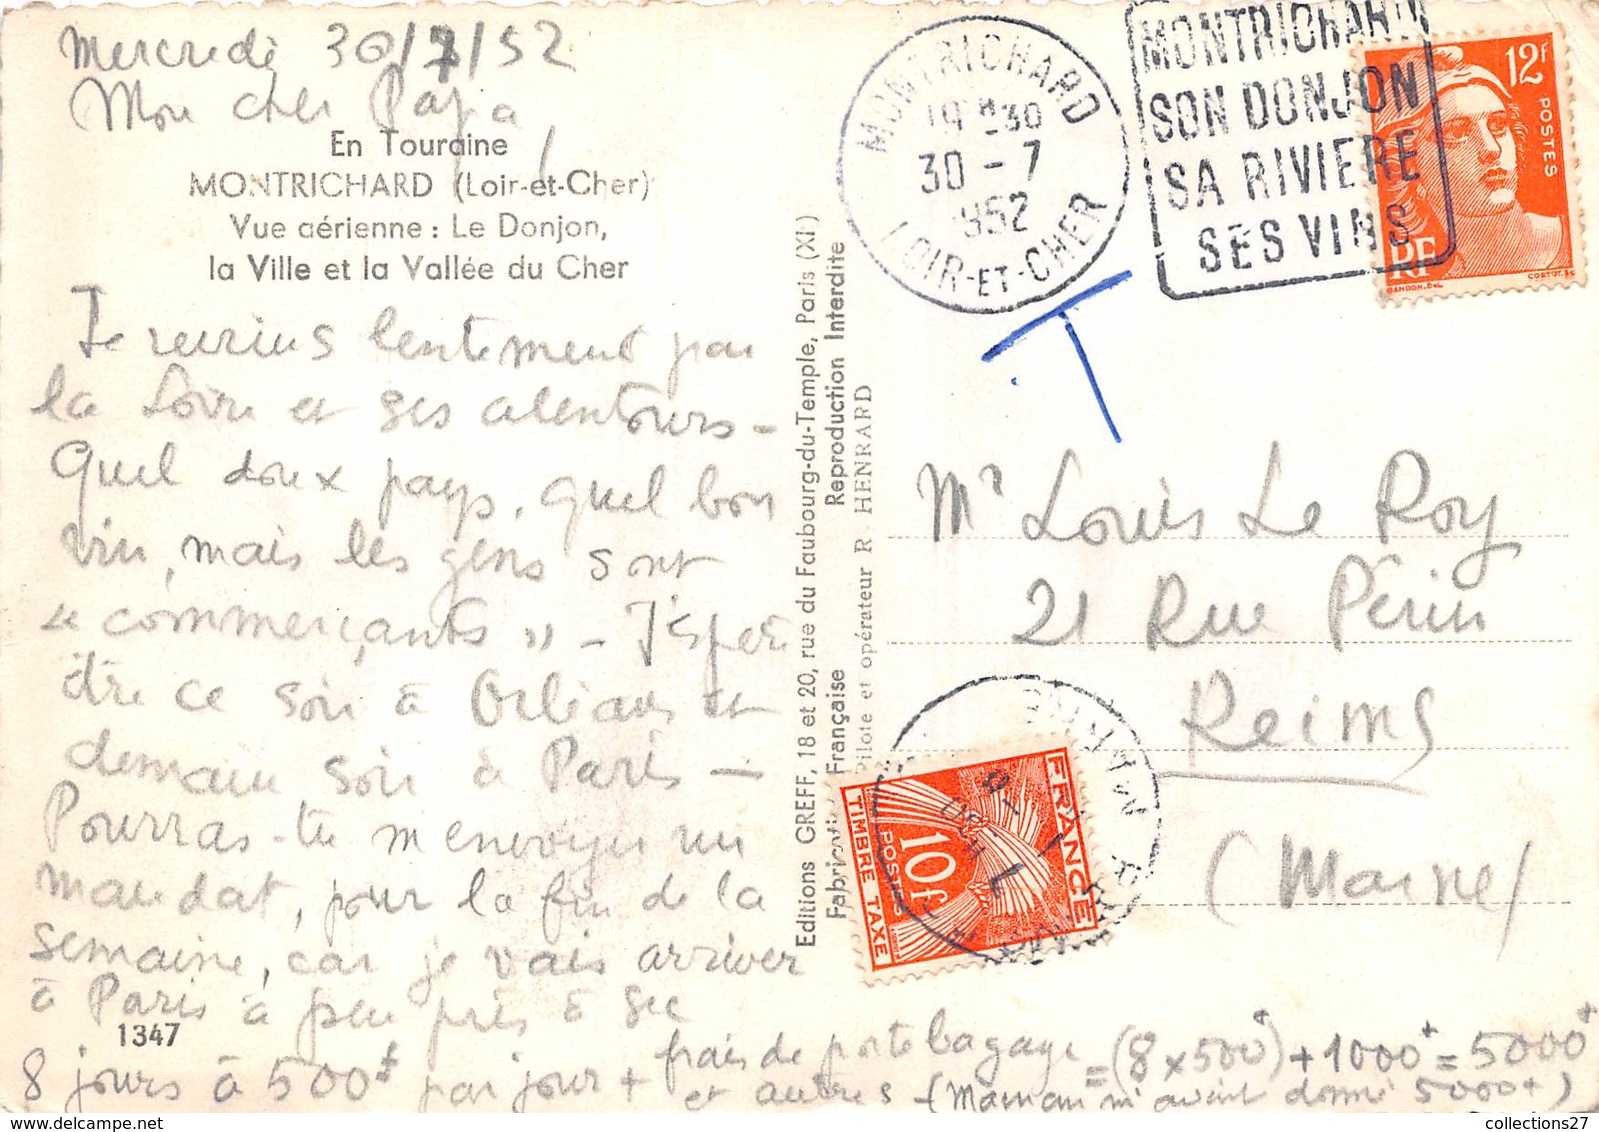 Mercredi 30/7/52
Mon cher Papa,
En Touraine
MONTRICHARD (Loir-et-Cher)
Vue aérienne : Le Donjon,
la Ville et la Vallée du Cher
Je reviens lentement par
la Loire et ses alentours -
Quel doux pays, quel bon
vin, mais les gens sont
« commerçants » - J'espère
être ce soir à Orléans et
demain soir à Paris -
Pourras-tu m'envoyer un
mandat, pour la fin de la
semaine, car je vais arriver
à Paris à peu près à sec
1347
8 jours à 500f par jour + frais de porte bagage
et autres
= (8 x 500f) + 1000f = 5000f
(Maman m'avait donné 5000f)
Editions GREFF, 18 et 20, rue du Faubourg-du-Temple, Paris (XI)
Fabrication Française Reproduction Interdite
Pilote et opérateur R. HENRARD
MONTRICHARD
19H30
30 - 7
1952
LOIR-ET-CHER
MONTRICHARD
SON DONJON
SA RIVIERE
SES VINS
12f
POSTES
RF
GANDON. DEL
CORTOT. SC
T
Mr Louis Le Roy
21 Rue Périn
Reims
(Marne)
FRANCE
10f
POSTES
TIMBRE TAXE
MARNE
collections27